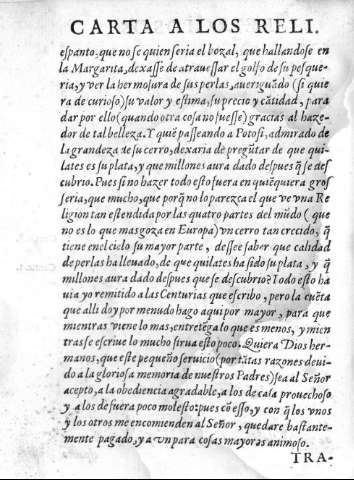 CARTA A LOS RELI.
espanto, que no se quien seria el bozal, que hallandose en
la Margarita, dexasse de atrauessar el golfo de su pesque-
ria, y ver la hermosura de sus perlas, aueriguãdo (si quie
ra de curioso) su valor y estima, su precio y cãtidad, para
dar por ello (quando otra cosa no fuesse) gracias al haze-
dor de tal belleza. Y quiẽ passeando a Potosi, admirado de
la grandeza de su cerro, dexaria de pregũtar de que qui-
lates es su plata, y que millones aura dado despues q̃ se des
cubrio. Pues si no hazer todo esto fuera en quiẽquiera gros
seria, que mucho, que porq̃ no lo parezca el que ve vna Re
ligion tan estendida por las quatro partes del mũdo (que
no es lo que mas goza en Europa) vn cerro tan crecido, q̃
tiene en el cielo su mayor parte, dessee saber que calidad
de perlas ha lleuado, de que quilates ha sido su plata, y q̃
millones aura dado despues que se descubrio? Todo esto ha
uia yo remitido a las Centurias que escribo, pero la cuẽta
que alli doy por menudo hago aqui por mayor, para que
mientras viene lo mas, entretẽga lo que es menos, y mien
tras se escriue lo mucho sirua esto poco. Quiera Dios her-
manos, que este pequeño seruicio (por tãtas razones deui-
do a la gloriosa memoria de nuestros Padres) sea al Señor
acepto, a la obediencia agradable, a los de casa prouechoso
y a los de fuera poco molesto: pues cõ esso, y con q̃ los vnos
y los otros me encomienden al Señor, quedare bastante-
mente pagado, y aun para cosas mayores animoso.
TRA-